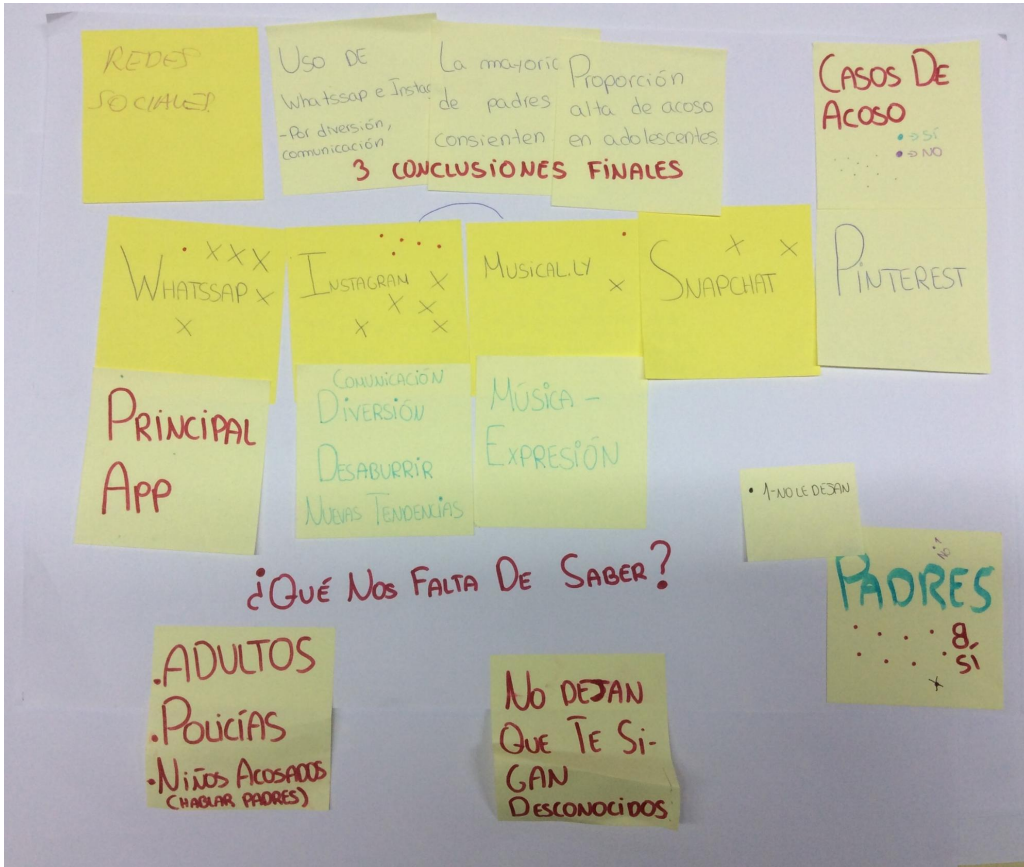 REDES
SOCIALES
USO DE
Whatssap e Instag
-Por diversión,
comunicación
La mayoric
de padres
consienten
Proporción
alta de acoso
en adolescentes
3 CONCLUSIONES FINALES
CASOS DE
ACOSO
• → SÍ
• → NO
WHATSSAP
INSTAGRAM
MUSICAL.LY
SNAPCHAT
PINTEREST
PRINCIPAL
APP
COMUNICACIÓN
DIVERSIÓN
DESABURRIR
NUEVAS TENDENCIAS
MÚSICA -
EXPRESIÓN
• 1-NO LE DEJAN
¿QUÉ NOS FALTA DE SABER?
PADRES
8
SÍ
.ADULTOS
.POLICÍAS
•NIÑOS ACOSADOS
(HABLAR PADRES)
NO DEJAN
QUE TE SI-
GAN
DESCONOCIDOS